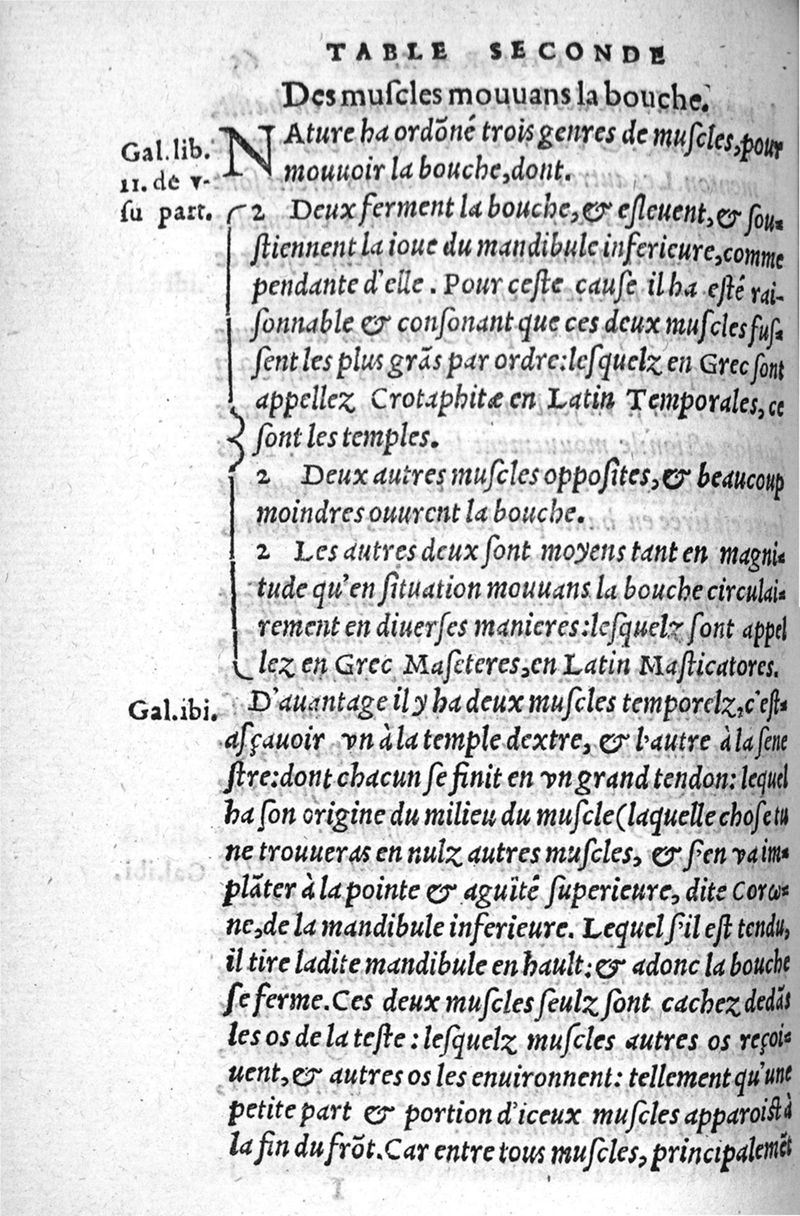 TABLE SECONDE
Des muſcles mouuans la bouche.
Gal.lib.
11. de v-
ſu part.
NAture ha ordõné trois genres de muſcles, pour
mouuoir la bouche, dont.
2 Deux ferment la bouche, & eſleuent, & ſou-
ſtiennent la ioue du mandibule inferieure, comme
pendante d'elle. Pour ceſte cauſe il ha eſté rai-
ſonnable & conſonant que ces deux muſcles fuſ-
ſent les plus grãs par ordre: leſquelz en Grec ſont
appellez Crotaphitæ en Latin Temporales, ce
ſont les temples.
2 Deux autres muſcles oppoſites, & beaucoup
moindres ouurent la bouche.
2 Les autres deux ſont moyens tant en magni-
tude qu'en ſituation mouuans la bouche circulai-
rement en diuerſes manieres: leſquelz ſont appel
lez en Grec Maſeteres, en Latin Maſticatores.
Gal.ibi.
D'auantage il y ha deux muſcles temporelz, c'eſt-
aſçauoir vn à la temple dextre, & l'autre à la ſene
ſtre: dont chacun ſe finit en vn grand tendon: lequel
ha ſon origine du milieu du muſcle (laquelle choſe tu
ne trouueras en nulz autres muſcles, & ſ'en va im-
plãter à la pointe & aguité ſuperieure, dite Corω-
ne, de la mandibule inferieure. Lequel ſ'il eſt tendu,
il tire ladite mandibule en hault: & adonc la bouche
ſe ferme. Ces deux muſcles ſeulz ſont cachez dedãs
les os de la teſte: leſquelz muſcles autres os reçoi-
uent, & autres os les enuironnent: tellement qu'une
petite part & portion d'iceux muſcles apparoiſt à
la fin du frõt. Car entre tous muſcles, principalemẽt